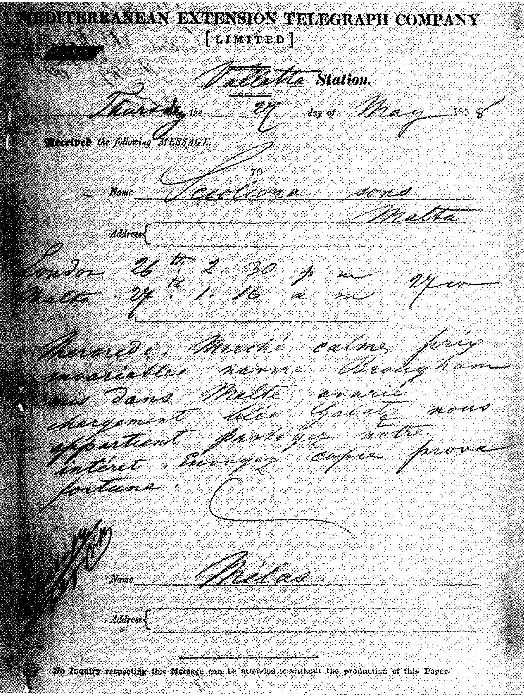 MEDITERRANEAN EXTENSION TELEGRAPH COMPANY
[LIMITED]
Valletta Station.
Thursday the 27 day of May 1858
Received the following MESSAGE
TO
Name Scicluna sons
Malta
Address
London 26th 2. 30 p m 27 w
Malta 27th 1. 16 a m
Mercredi. Marché calme prix
invariables navire Brougham
dans Malte avarié
chargement blé nous
appartient protégez notre
intérêt. Envoyez copie prova
fortune.
Name Melas
Address
No Inquiry respecting this Message can be attended to without the production of this Paper.